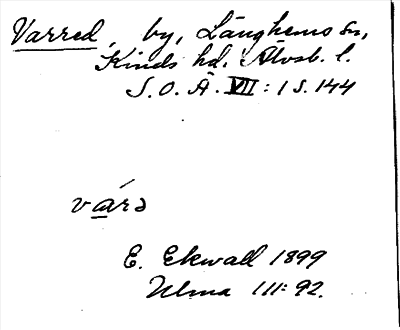 Varred, by, Länghems sn,
Kinds hd. Älvsb. l.
S.O.Ä. VII: 1 s. 144
várə
E. Ekwall 1899
Ulma 111: 92.